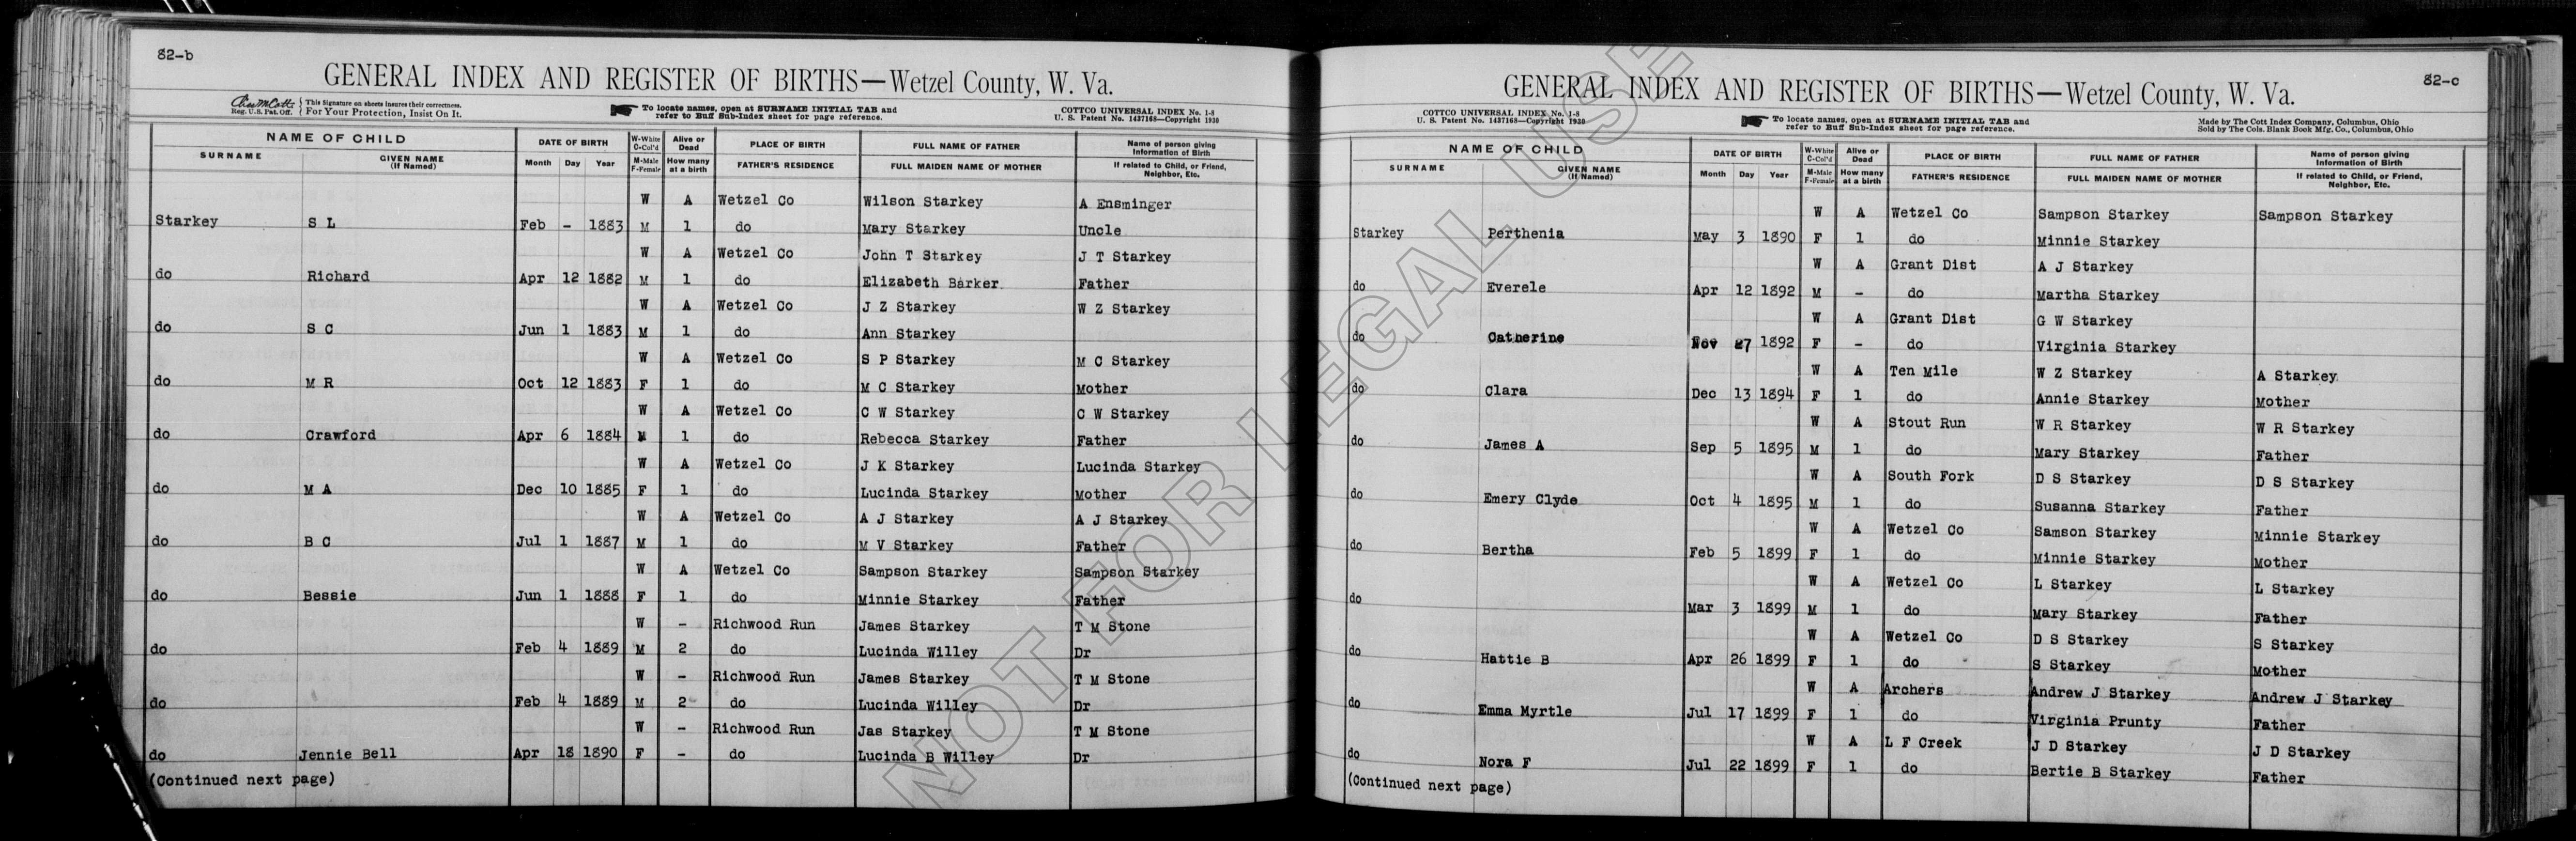 82-b
GENERAL INDEX AND REGISTER OF BIRTHS—Wetzel County, W. Va.
Reg. U.S. Pat. Off. This Signature on sheets insures their correctness. For Your Protection, Insist On It.
To locate names, open at SURNAME INITIAL TAB and refer to Buff Sub-Index sheet for page reference.
COTTCO UNIVERSAL INDEX No. 1-8
U. S. Patent No. 1437168—Copyright 1930
NAME OF CHILD DATE OF BIRTH W-White C-Col'd Alive or Dead PLACE OF BIRTH FULL NAME OF FATHER Name of person giving Information of Birth
SURNAME GIVEN NAME (If Named) Month Day Year M-Male F-Female How many at a birth FATHER'S RESIDENCE FULL MAIDEN NAME OF MOTHER If related to Child, or Friend, Neighbor, Etc.
W A Wetzel Co Wilson Starkey A Ensminger
Starkey S L Feb - 1883 M 1 do Mary Starkey Uncle
W A Wetzel Co John T Starkey J T Starkey
do Richard Apr 12 1882 M 1 do Elizabeth Barker Father
W A Wetzel Co J Z Starkey W Z Starkey
do S C Jun 1 1883 M 1 do Ann Starkey
W A Wetzel Co S P Starkey M C Starkey
do M R Oct 12 1883 F 1 do M C Starkey Mother
W A Wetzel Co C W Starkey C W Starkey
do Crawford Apr 6 1884 M 1 do Rebecca Starkey Father
W A Wetzel Co J K Starkey Lucinda Starkey
do M A Dec 10 1885 F 1 do Lucinda Starkey Mother
W A Wetzel Co A J Starkey A J Starkey
do B C Jul 1 1887 M 1 do M V Starkey Father
W A Wetzel Co Sampson Starkey Sampson Starkey
do Bessie Jun 1 1888 F 1 do Minnie Starkey Father
W - Richwood Run James Starkey T M Stone
do Feb 4 1889 M 2 do Lucinda Willey Dr
W - Richwood Run James Starkey T M Stone
do Feb 4 1889 M 2 do Lucinda Willey Dr
W - Richwood Run Jas Starkey T M Stone
do Jennie Bell Apr 18 1890 F - do Lucinda B Willey Dr
(Continued next page)
82-c
GENERAL INDEX AND REGISTER OF BIRTHS—Wetzel County, W. Va.
COTTCO UNIVERSAL INDEX No. 1-8
U. S. Patent No. 1437168—Copyright 1930
To locate names, open at SURNAME INITIAL TAB and refer to Buff Sub-Index sheet for page reference.
Made by The Cott Index Company, Columbus, Ohio
Sold by The Cols. Blank Book Mfg. Co., Columbus, Ohio
NAME OF CHILD DATE OF BIRTH W-White C-Col'd Alive or Dead PLACE OF BIRTH FULL NAME OF FATHER Name of person giving Information of Birth
SURNAME GIVEN NAME (If Named) Month Day Year M-Male F-Female How many at a birth FATHER'S RESIDENCE FULL MAIDEN NAME OF MOTHER If related to Child, or Friend, Neighbor, Etc.
W A Wetzel Co Sampson Starkey Sampson Starkey
Starkey Perthenia May 3 1890 F 1 do Minnie Starkey
W A Grant Dist A J Starkey
do Everele Apr 12 1892 M - do Martha Starkey
W A Grant Dist G W Starkey
do Catherine Nov 27 1892 F - do Virginia Starkey
W A Ten Mile W Z Starkey A Starkey
do Clara Dec 13 1894 F 1 do Annie Starkey Mother
W A Stout Run W R Starkey W R Starkey
do James A Sep 5 1895 M 1 do Mary Starkey Father
W A South Fork D S Starkey D S Starkey
do Emery Clyde Oct 4 1895 M 1 do Susanna Starkey Father
W A Wetzel Co Samson Starkey Minnie Starkey
do Bertha Feb 5 1899 F 1 do Minnie Starkey Mother
W A Wetzel Co L Starkey L Starkey
do Mar 3 1899 M 1 do Mary Starkey Father
W A Wetzel Co D S Starkey S Starkey
do Hattie B Apr 26 1899 F 1 do S Starkey Mother
W A Archers Andrew J Starkey Andrew J Starkey
do Emma Myrtle Jul 17 1899 F 1 do Virginia Prunty Father
W A L F Creek J D Starkey J D Starkey
do Nora F Jul 22 1899 F 1 do Bertie B Starkey Father
(Continued next page)
NOT FOR LEGAL USE